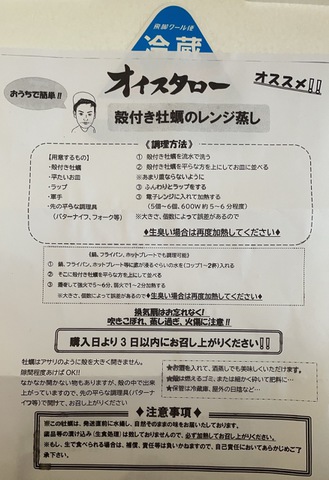 飛脚クール便
冷蔵
オイスタロー
オススメ!!
おうちで簡単!!
殻付き牡蠣のレンジ蒸し
《調理方法》
【用意するもの】
・殻付き牡蠣
・平たいお皿
・ラップ
・軍手
・先の平らな調理具
(バターナイフ、フォーク等)
① 殻付き牡蠣を流水で洗う
② 殻付き牡蠣の平らな方を上にしてお皿に並べる
※あまり重ならないように
③ ふんわりとラップをする
④ 電子レンジに入れて加熱する
(5個~6個、600Wで約5~6分程度)
※大きさ、個数によって誤差があるので
♦生臭い場合は再度加熱してください♦
(鍋、フライパン、ホットプレートでも調理可能)
① 鍋、フライパン、ホットプレート等に底が浸るぐらいの水を(コップ1~2杯)入れる
② そこに殻付き牡蠣を平らな方を上にして並べる
③ 蓋をして強火で5~6分、弱火で1~2分加熱する
※大きさ、個数によって誤差があるので♦生臭い場合は再度加熱してください♦
換気扇はお忘れなく!
吹きこぼれ、蒸し過ぎ、火傷に注意!!
購入日より3日以内にお召し上がりください!!
牡蠣はアサリのように殻を大きく開きません。
隙間程度あけばOK!!
なかなか開かない物もありますが、殻の中で出来
上がっていますので、先の平らな調理具(バターナ
イフ等)で開けて、お召し上がりください
★お酒を入れて、酒蒸しでも美味しくいただけます。
★殻は燃えるゴミ、または細かく砕いて肥料に…
★保管は冷蔵庫、屋外の日陰など…
♦注意事項♦
※この牡蠣は、発送直前に水揚し、自然そのままの味をお届けしております。
薬品等の漬け込み(生食処理)は致しておりませんので、必ず加熱してお召し上がりください。
※もし、生で食べられる場合は、補償、責任等は負いかねますので、自己責任においてあらかじめご了
承下さい。